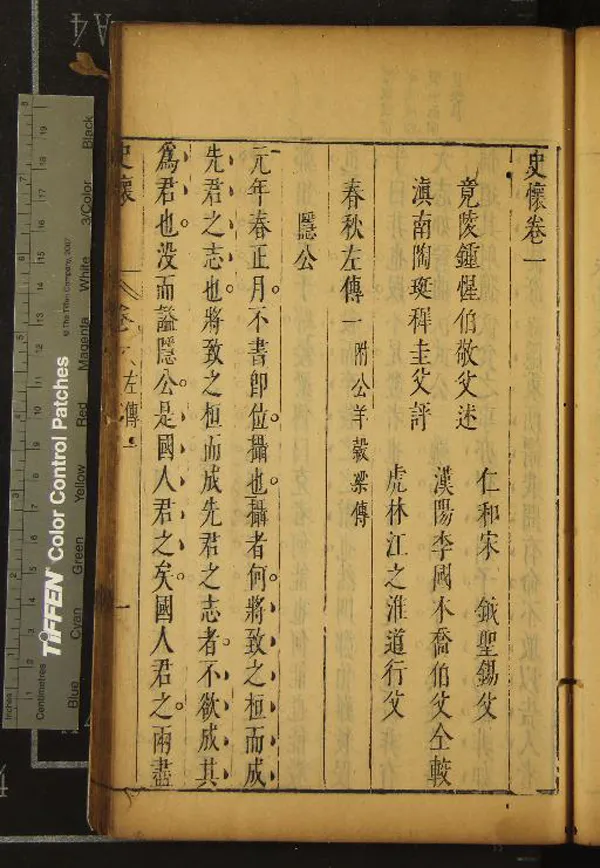 史懷卷一
竟陵鍾惺伯敬父述
仁和宋 鉞聖錫父
滇南陶珽稺圭父評
漢陽李國木喬伯父仝較
虎林江之淮道行父
春秋左傳一 附公羊穀梁傳
隱公
元年春正月。不書卽位。攝也。攝者何。將致之桓而成
先君之志也。將致之桓而成先君之志者。不欲成其
爲君也。没而謚隱公。是國人君之矣。國人君之。兩盡
史懷
卷一
左傳一
一
A4
TIFFEN Color Control Patches
© The Tiffen Company, 2007
Inches
Centimetres
Blue
Cyan
Green
Yellow
Red
Magenta
White
3/Color
Black